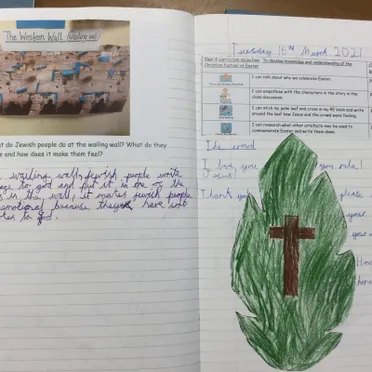 The Western Wall
What do Jewish people do at the wailing wall? What do they
and how does it make them feel?
wailing wall, jewish people write
to god and put it in one of the
in the wall, it makes jewish people
emotional because they have sent
to God.
Tuesday March 2021
To develop knowledge and understanding of the
Christian festival of Easter
I can talk about why we celebrate Easter
I can empathise with the characters in the story in the
class discussion.
I can stick my palm leaf and cross in my RE book and write
around the leaf how Jesus and the crowd were feeling.
I can research what other artefacts may be used to
commemorate Easter and write them down.
I love you you rule!
Jesus!
Thank you please
your
your